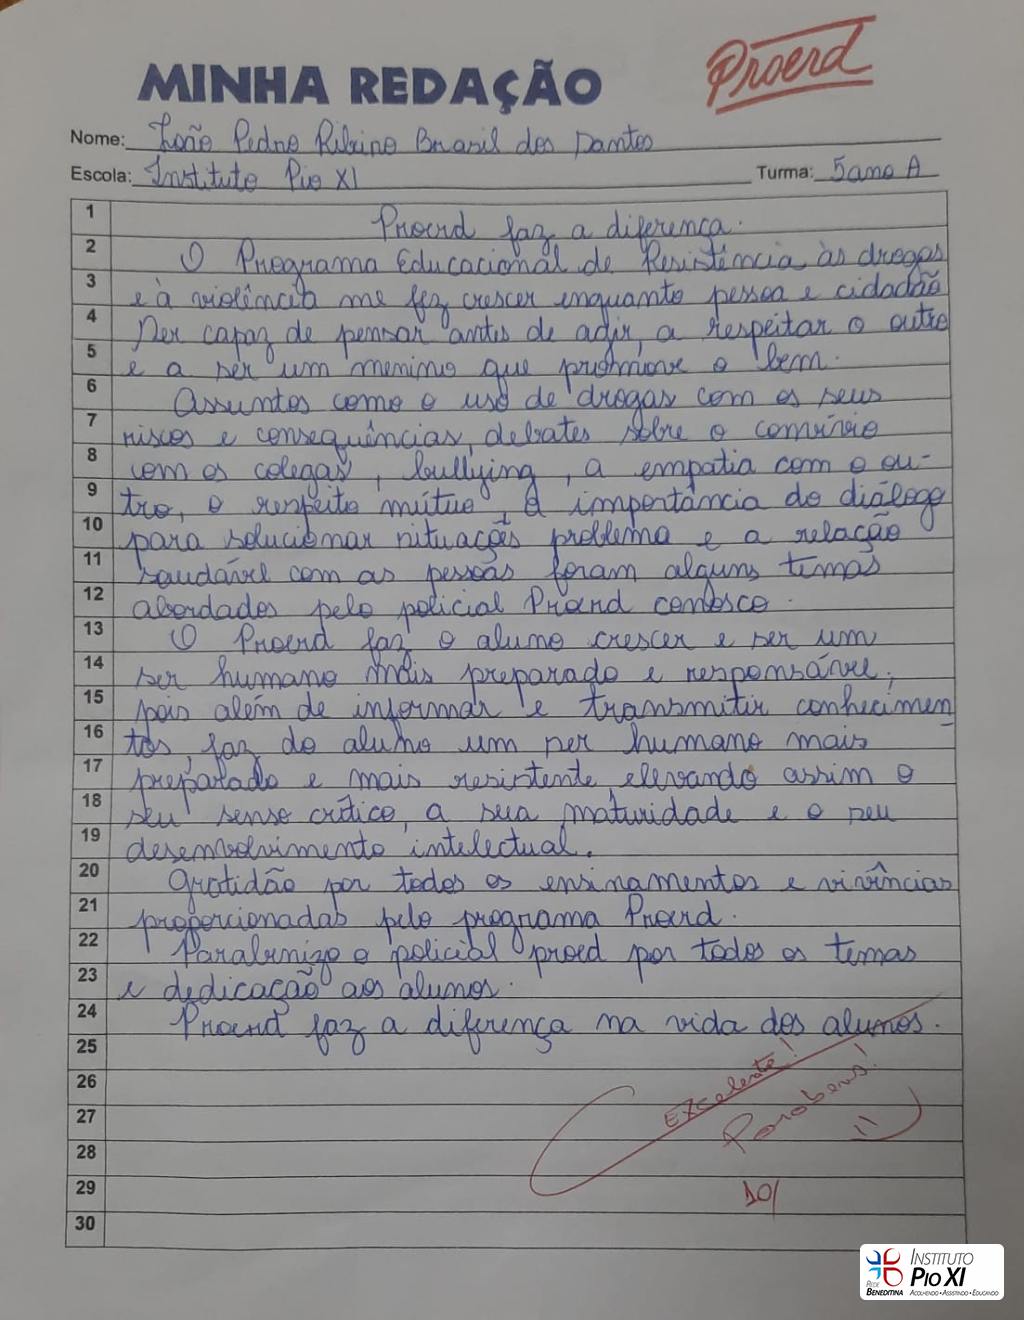 Proerd
MINHA REDAÇÃO
Nome: João Pedro Ribeiro Brasil dos Santos
Escola: Instituto Pio XI Turma: 5 ano A
1 Proerd faz a diferença.
2 O Programa Educacional de Resistência às drogas
3 e à violência me fez crescer enquanto pessoa e cidadão
4 Ser capaz de pensar antes de agir, a respeitar o outro
5 e a ser um menino que promove o bem.
6 Assuntos como o uso de drogas com os seus
7 riscos e consequências, debates sobre o convívio
8 com os colegas, bullying, a empatia com o ou-
9 tro, o respeito mútuo, a importância do diálogo
10 para solucionar situações problema e a relação
11 saudável com as pessoas foram alguns temas
12 abordados pelo policial Proerd conosco.
13 O Proerd faz o aluno crescer e ser um
14 ser humano mais preparado e responsável,
15 pois além de informar e transmitir conhecimen-
16 tos, faz do aluno um ser humano mais
17 preparado e mais resistente, elevando assim o
18 seu senso crítico, a sua maturidade e o seu
19 desenvolvimento intelectual.
20 Gratidão por todos os ensinamentos e vivências
21 proporcionadas pelo programa Proerd.
22 Parabenizo o policial proed por todos os temas
23 e dedicação aos alunos.
24 Proerd faz a diferença na vida dos alunos.
25
26 Excelente!
27 Parabéns!
28
29 10
30
INSTITUTO
PIO XI
REDE
BENEDITINA
ACOLHENDO • ASSISTINDO • EDUCANDO